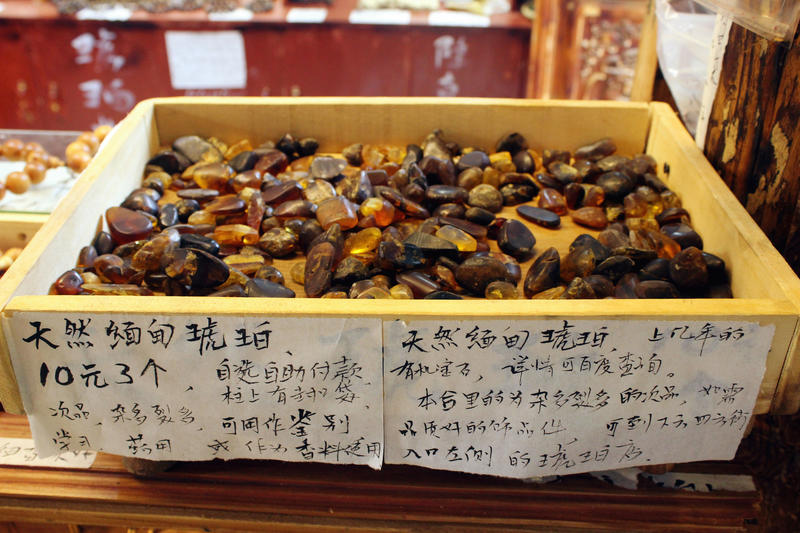 琥珀
天然缅甸琥珀、
10元3个, 自选自助付款,
柱上有封口袋,
次品,杂多裂多,可用作鉴别
学习、药用 或作为香料使用
天然缅甸琥珀, 上亿年的
有机宝石,详情可百度查询。
本台里的为杂多裂多的次品,如需
品质好的饰品件, 可到下方四方街
入口左侧的琥珀店。